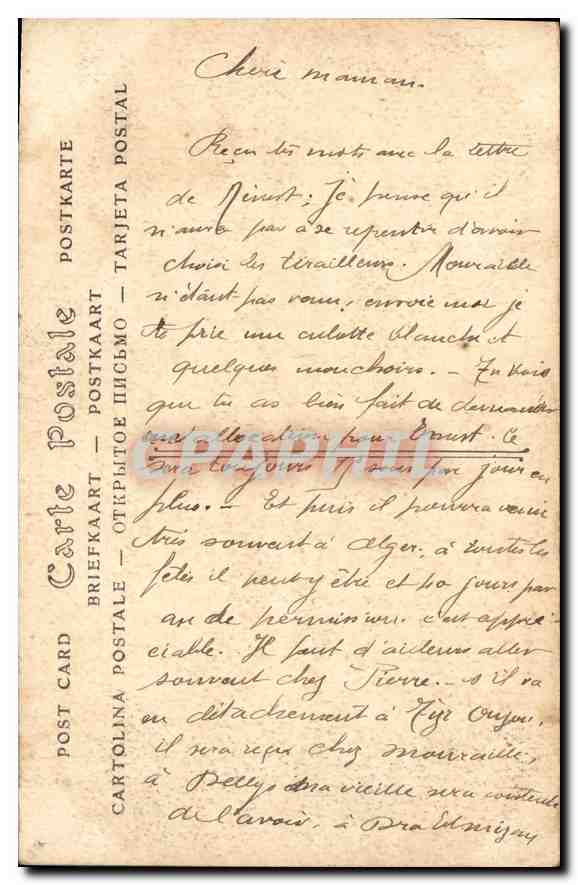 Chère maman.
Reçu tes mots avec la lettre
de Ernest; Je pense qu'il
n'aura pas à se repentir d'avoir
choisi les tirailleurs. Mouraille
n'étant pas venu, envoie moi je
te prie une culotte blanche et
quelques mouchoirs. – Tu vois
que tu as bien fait de demander
une allocation pour Ernest. Ce
sera toujours sous par jour en
plus. – Et puis il pourra venir
très souvent à Alger, à toutes les
fêtes il peut y être et 40 jours par
an de permission. c'est appré-
ciable. Il peut d'ailleurs aller
souvent chez Pierre. – s'il va
en détachement à Tizi Ouzou,
il sera reçu chez Mouraille,
à Dellys ma vieille sera contente
de l'avoir, à Dra El Mizan
POST CARD Carte Postale POSTKARTE
BRIEFKAART — POSTKAART
CARTOLINA POSTALE — ОТКРЫТОЕ ПИСЬМО — TARJETA POSTAL
CPAPHIL